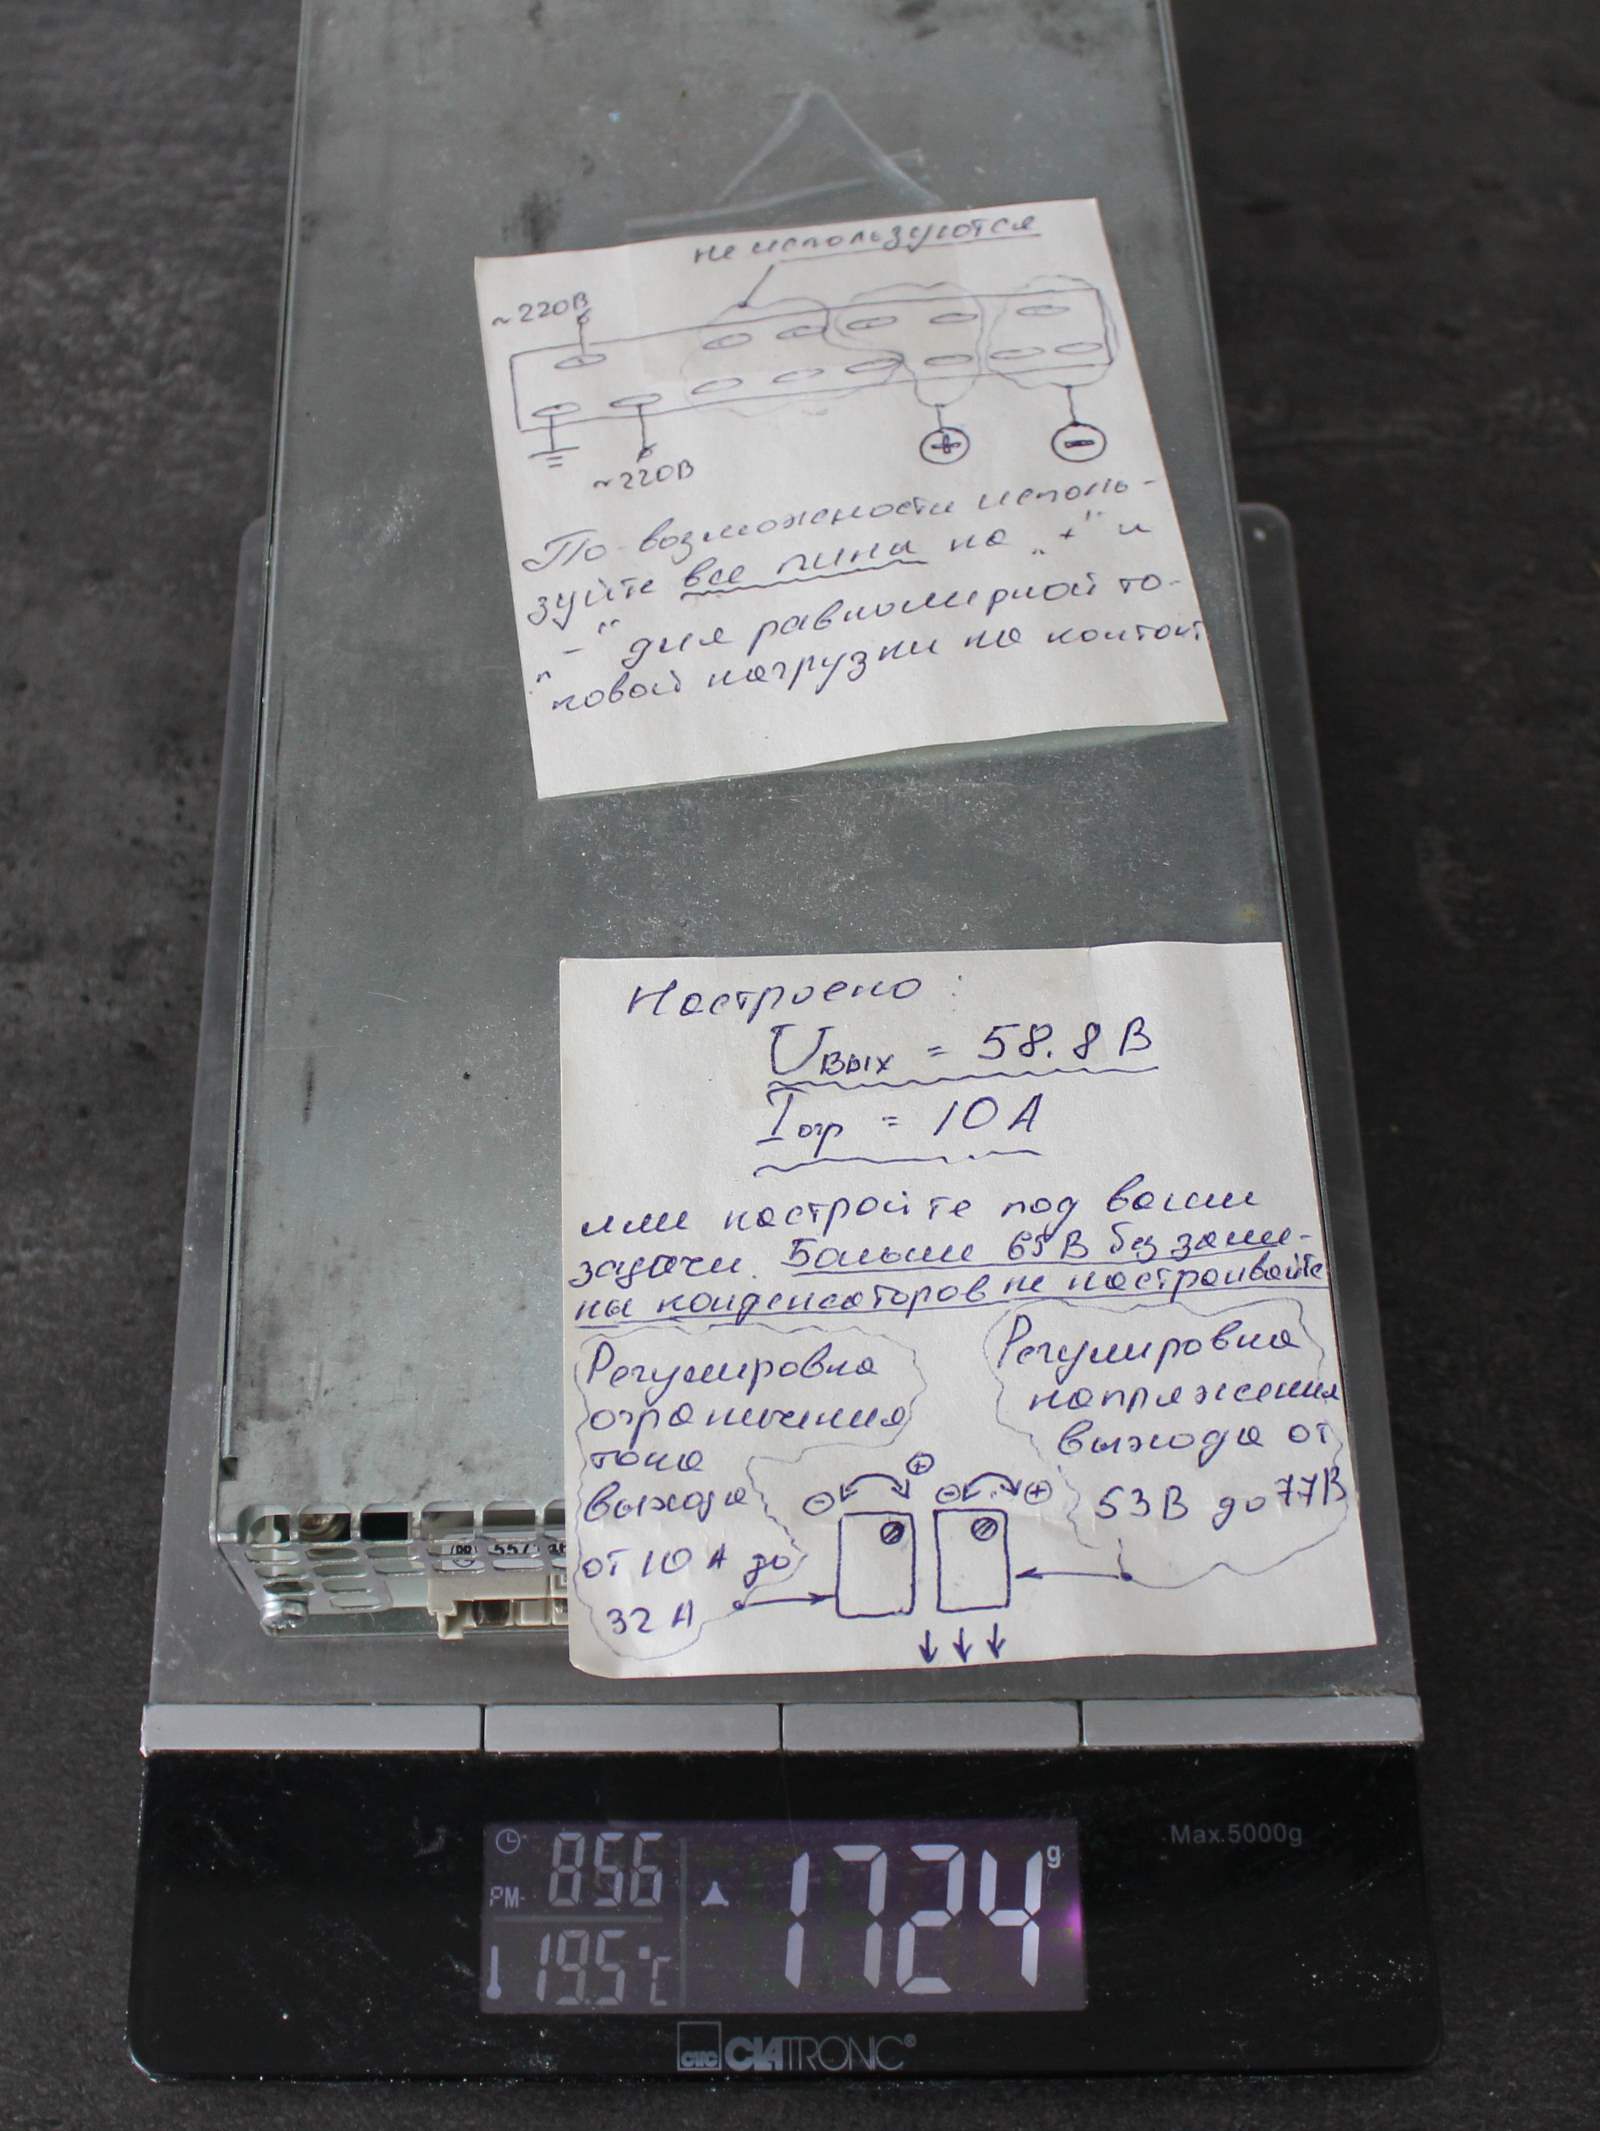 не используются
~220В
~220В
+
-
По возможности исполь-
зуйте все пины на „+“ и
„-“ для равномерной то-
ковой нагрузки на контакт
Настроено:
Uвых = 58.8 В
Iогр = 10 А
или настройте под ваши
задачи. Больше 65 В без заме-
ны конденсаторов не настраивайте
Регулировка
ограничения
тока
выхода
от 10 А до
32 А
Регулировка
напряжения
выхода от
53 В до 77 В
- +
- +
PM 8:56
19.5°C
1724 g
Max.5000g
CTC CLATRONIC®